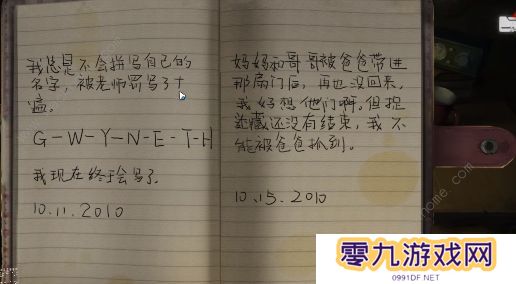 我总是不会拼写自己的
名字，被老师罚写了十
遍。
G-W-Y-N-E-T-H
我现在终于会写了
10.11.2010
妈妈和哥哥被爸爸带进
那扇门后，再也没回来，
我好想他们啊。但捉
迷藏还没有结束，我不
能被爸爸抓到。
10.15.2010
零九游戏网
0991DF.NET